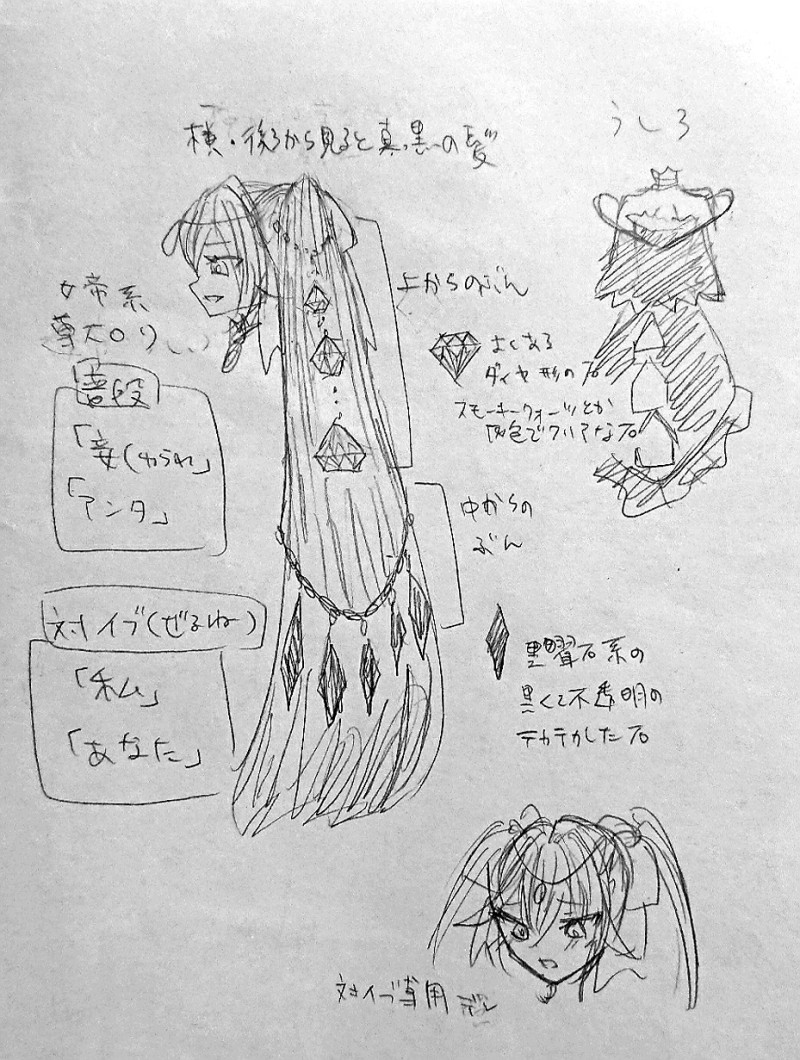 横・後ろから見ると真っ黒の髪
うしろ
女帝系
尊大ロリ
上からのぶん
よくある
ダイヤ形の石
スモーキークォーツとか
灰色でクリアな石
普段
「妾(わらわ)」
「アンタ」
中からの
ぶん
対イブ(ぜるねー)
「私」
「あなた」
黒曜石系の
黒くて不透明の
テカテカした石
対イブ専用